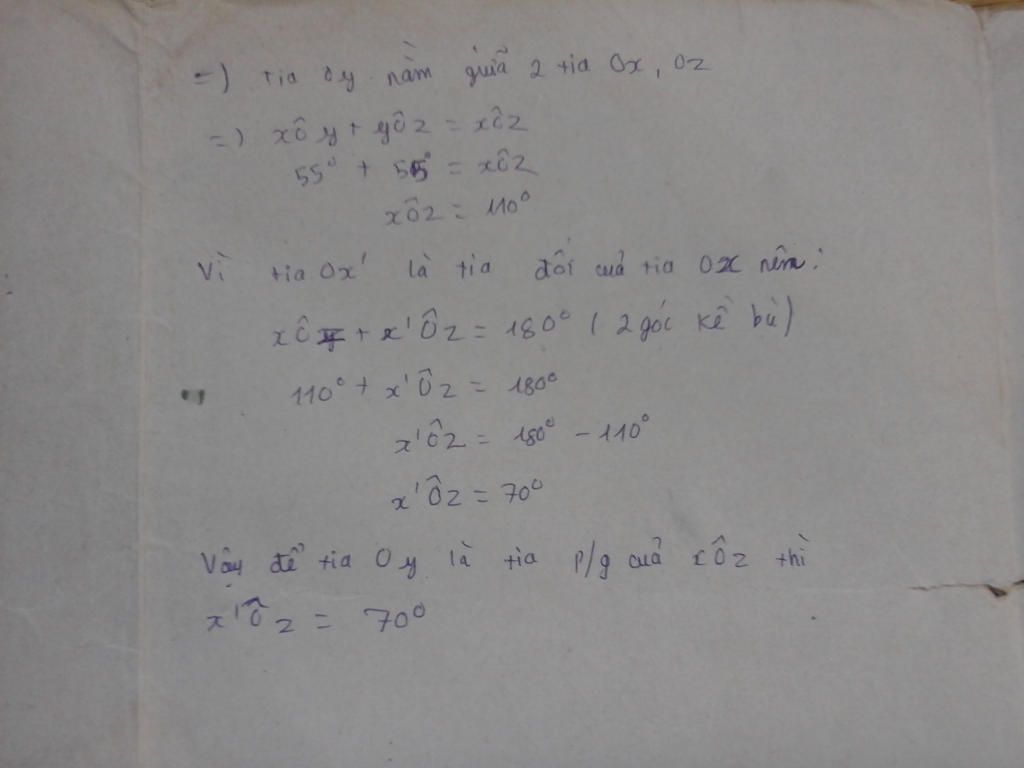 =) tia Oy nằm giữa 2 tia Ox, Oz
=) xÔy + yÔz = xÔz
55° + 55° = xÔz
xÔz = 110°
Vì tia Ox' là tia đối của tia Ox nên:
xÔz + x'Ôz = 180° ( 2 góc kề bù)
110° + x'Ôz = 180°
x'Ôz = 180° - 110°
x'Ôz = 70°
Vậy để tia Oy là tia p/g của xÔz thì
x'Ôz = 70°